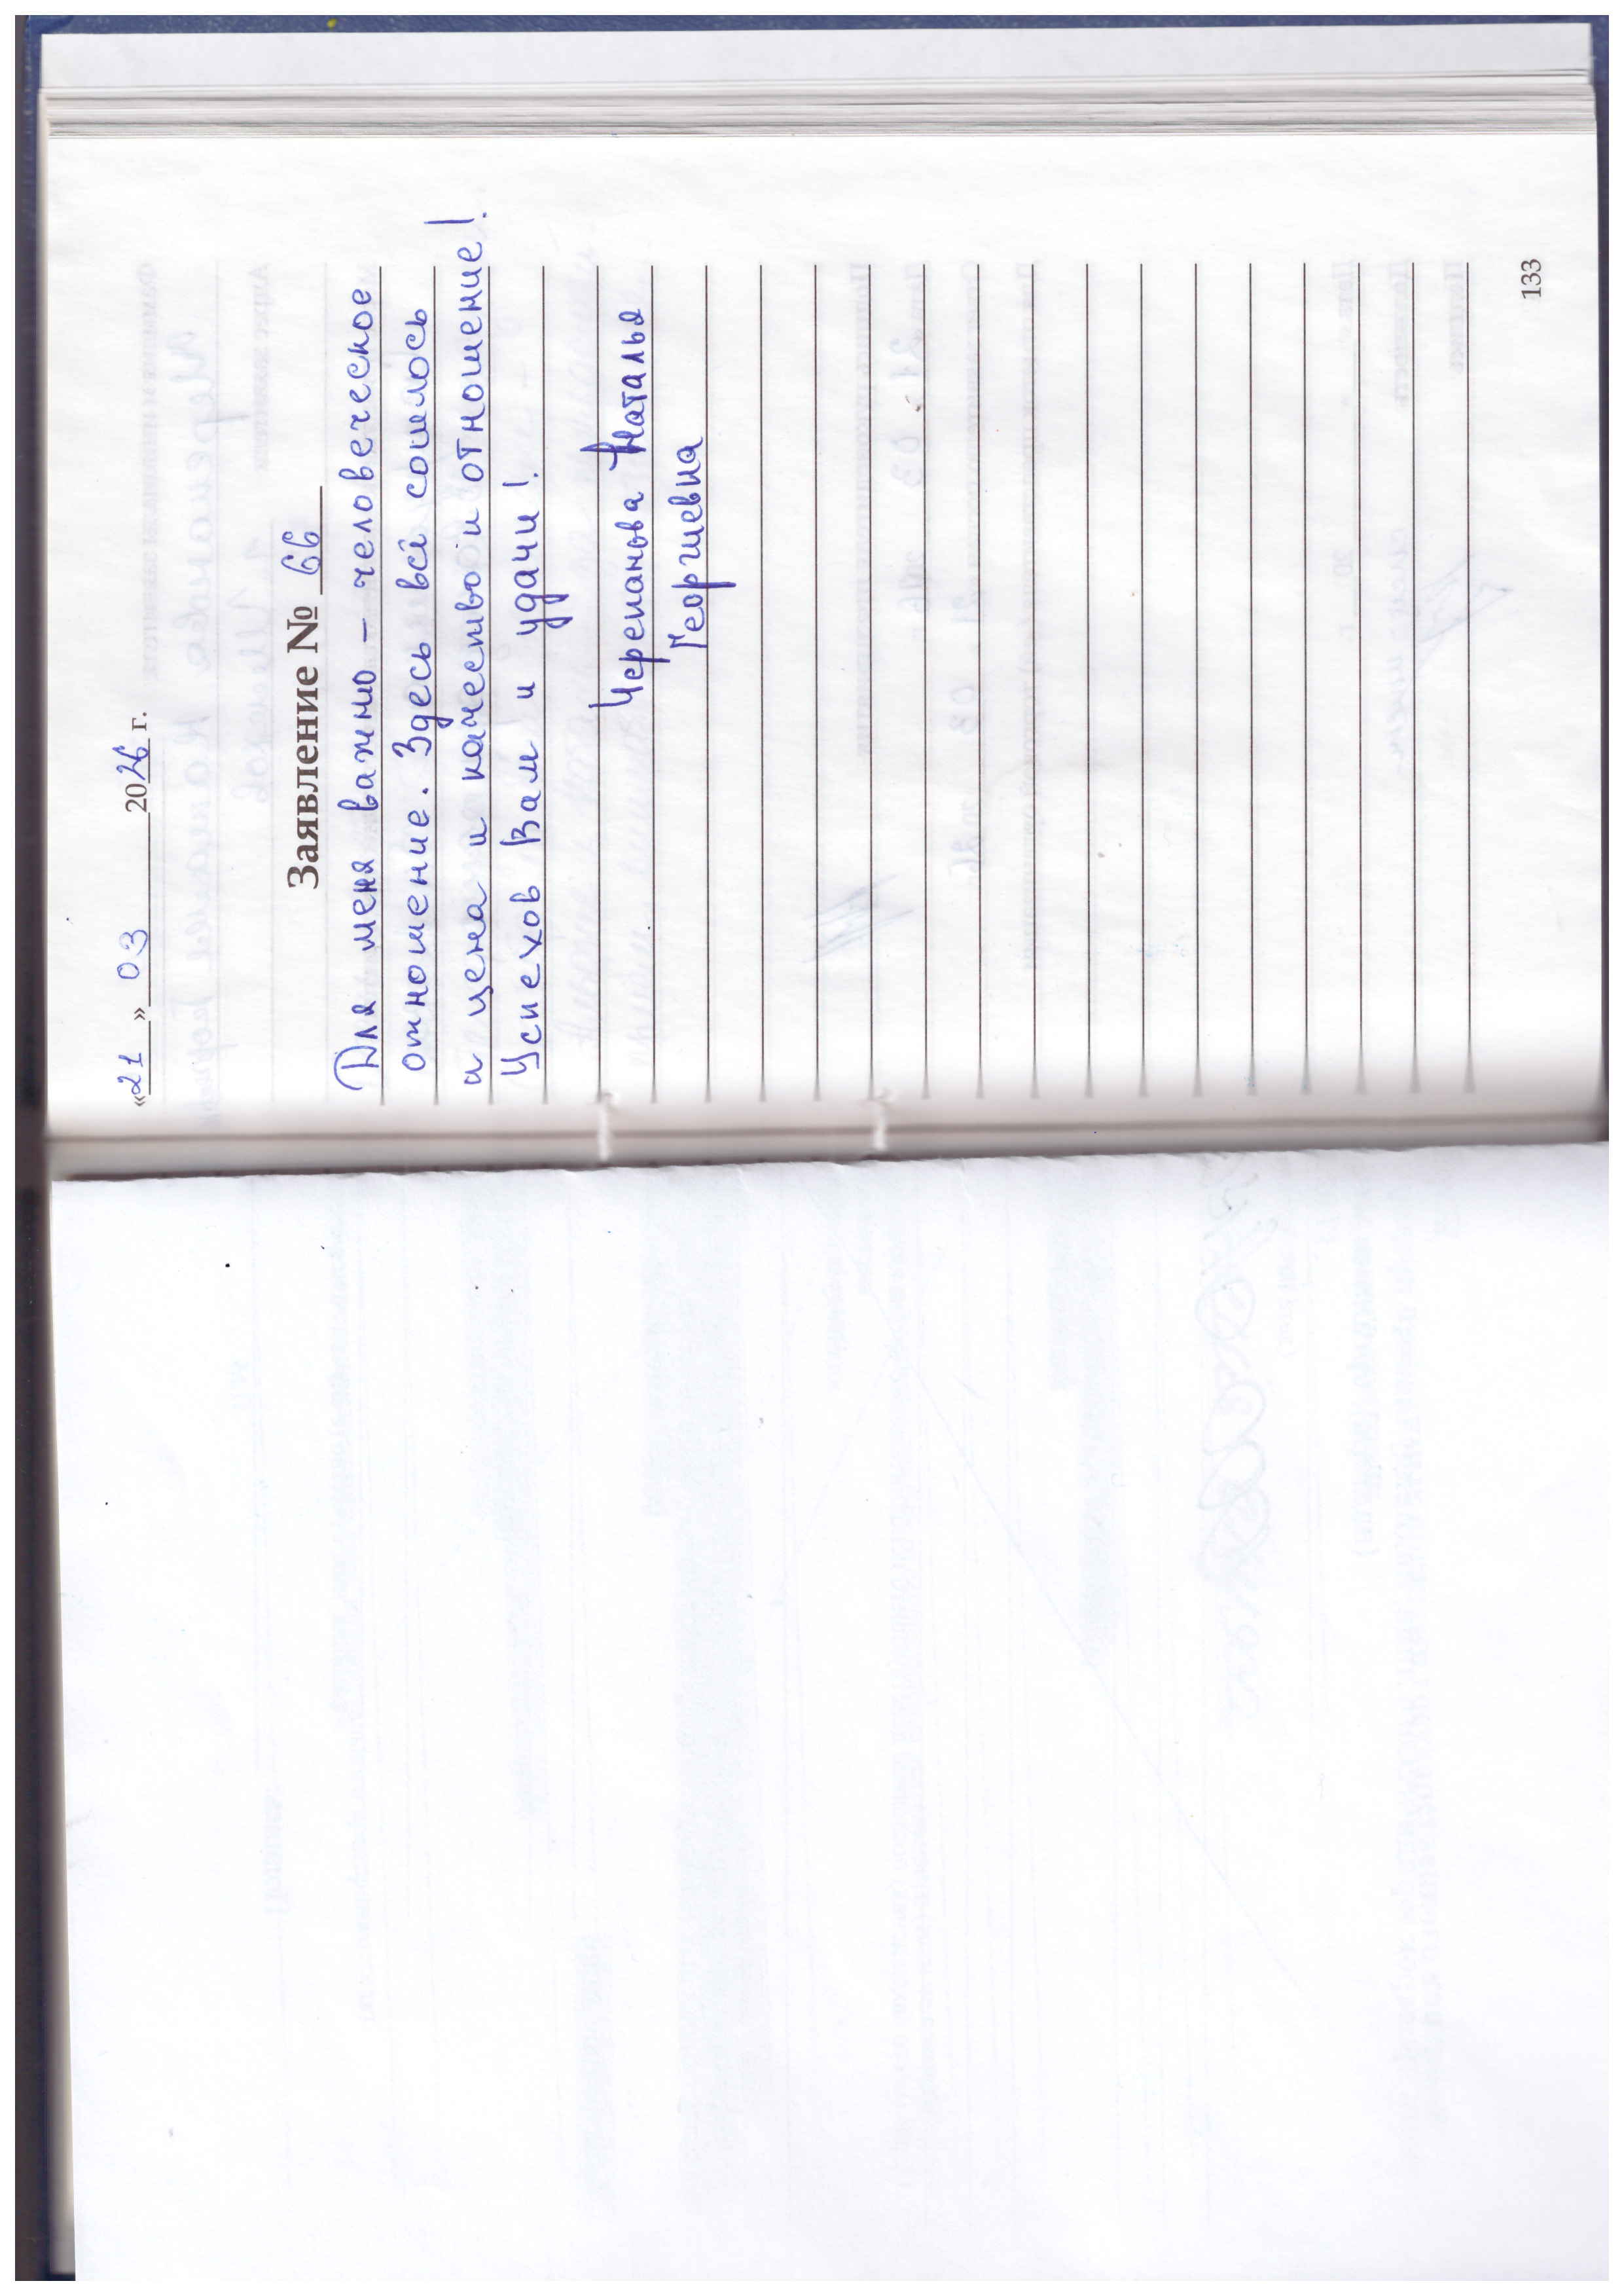 «21» 03 2026 г.
Заявление № 66
Для меня важно – человеческое
отношение. Здесь всё сошлось
и цена и качество и отношение!
Успехов Вам и удачи!
Черепанова Наталья
Георгиевна
133